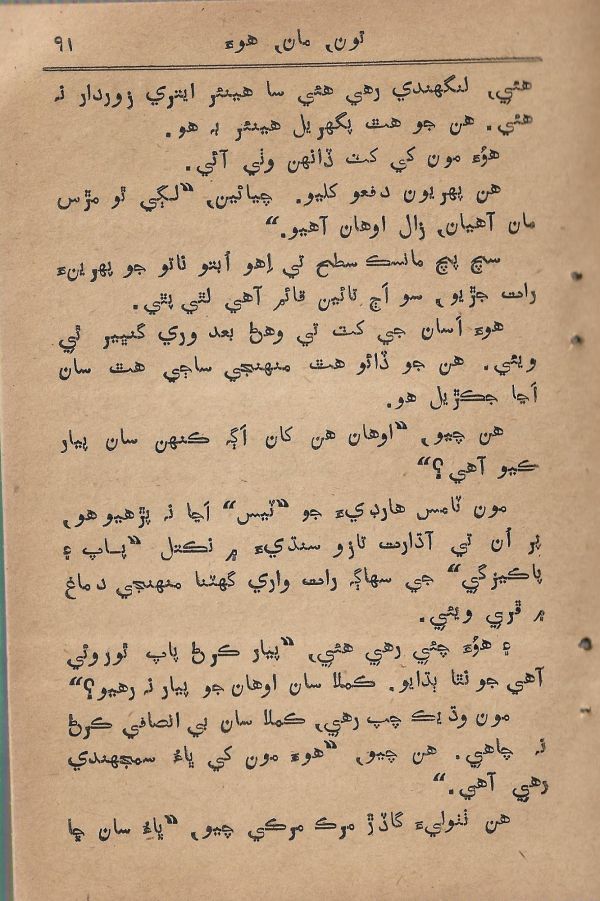 تون، مان، هوءَ ۹۱
هئي، لنگهندي رهي هئي سا هينئر ايتري زوردار نہ
هئي. هن جو هٿ پگهريل هينئر بہ هو.
هوُءَ مون کي کٽ ڏانهن وٺي آئي.
هن پهريون دفعو کليو. چيائين، ”لڳي ٿو مڙس
مان آهيان، زال اوهان آهيو.“
سچ پچ مانسڪ سطح تي اِهو اُبتو ناتو جو پهرينءَ
رات جڙيو، سو اَڄ تائين قائم آهي لٿي پٿي.
هوءَ اَسان جي کٽ تي وهڻ بعد وري گنڀير ٿي
ويئي. هن جو ڏائو هٿ منهنجي ساڄي هٿ سان
اَڃا جڪڙيل هو.
هن چيو، ”اوهان هن کان اَڳہ ڪنهن سان پيار
ڪيو آهي؟“
مون ٿامس هارڊيءَ جو ”ٽيس“ اَڃا نہ پڙهيو هو،
پر اُن تي آڌارت تازو سنڌيءَ ۾ نڪتل ”پاپ ۽
پاڪيزگي“ جي سهاڳہ رات واري گهٽنا منهنجي دماغ
۾ ڦري ويئي.
۽ هوُءَ چئي رهي هئي، ”پيار ڪرڻ پاپ ٿوروئي
آهي جو نٿا ٻڌايو. ڪملا سان اوهان جو پيار نہ رهيو؟“
مون وڌيڪ چپ رهي، ڪملا سان بي انصافي ڪرڻ
نہ چاهي. هن چيو، ”هوءَ مون کي ڀاءُ سمجهندي
رهي آهي.“
هن ٺٺوليءَ گاڏڙ مرڪ مرڪي چيو، ”ڀاءُ سان ڇا